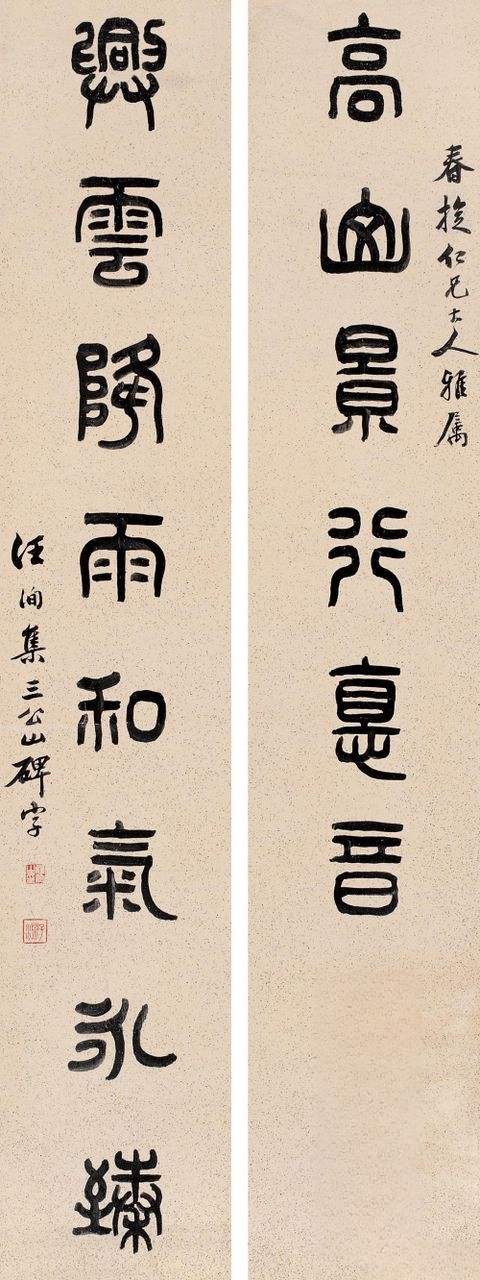 春仁兄大人雅属
高山景行悳音
興雲降雨和氣永臻
汪洵集三公山碑字